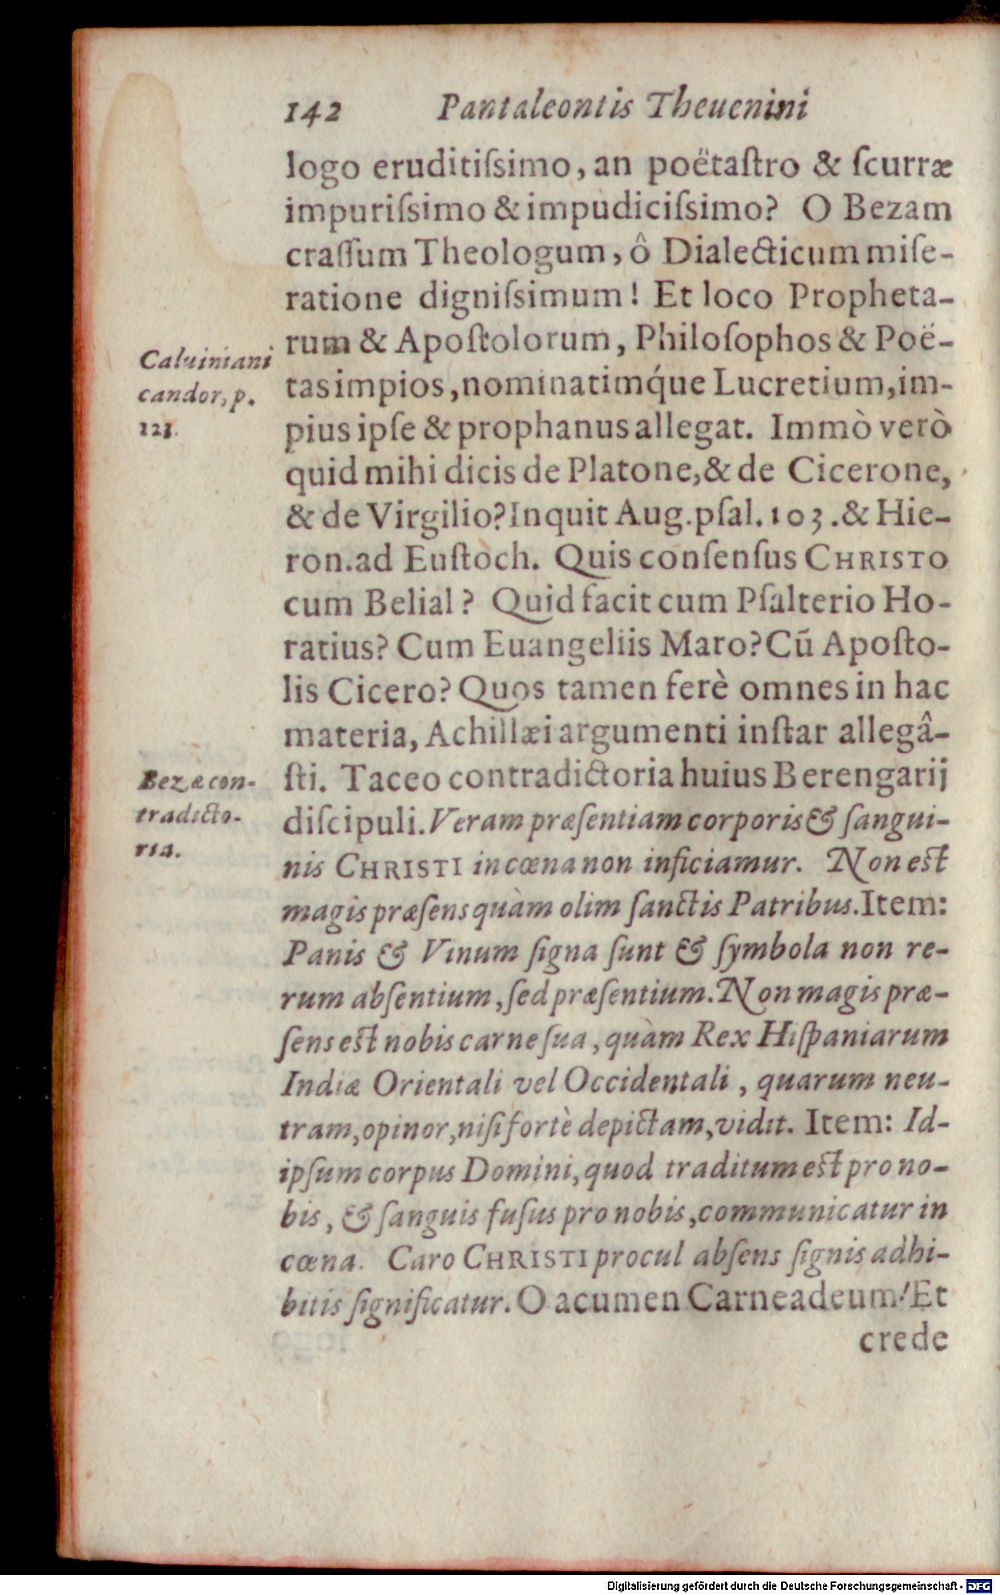 142 Pantaleontis Theuenini
logo eruditiſsimo, an poëtaſtro & ſcurræ
impuriſsimo & impudiciſsimo? O Bezam
craſſum Theologum, ô Dialecticum miſe-
ratione digniſsimum! Et loco Propheta-
rum & Apoſtolorum, Philoſophos & Poë-
tas impios, nominatimq́ue Lucretium, im-
pius ipſe & prophanus allegat. Immò verò
quid mihi dicis de Platone, & de Cicerone,
& de Virgilio? Inquit Aug. pſal. 103. & Hie-
ron. ad Euſtoch. Quis conſenſus CHRISTO
cum Belial? Quid facit cum Pſalterio Ho-
ratius? Cum Euangeliis Maro? Cũ Apoſto-
lis Cicero? Quos tamen ferè omnes in hac
materia, Achillæi argumenti inſtar allegâ-
ſti. Taceo contradictoria huius Berengarij
diſcipuli. Veram præſentiam corporis & ſangui-
nis CHRISTI in cœna non inficiamur. Non eſt
magis præſens quàm olim ſanctis Patribus. Item:
Panis & Vinum ſigna ſunt & ſymbola non re-
rum abſentium, ſed præſentium. Non magis præ-
ſens eſt nobis carne ſua, quàm Rex Hiſpaniarum
Indiæ Orientali vel Occidentali, quarum neu-
tram, opinor, niſi fortè depictam, vidit. Item: Id-
ipſum corpus Domini, quod traditum eſt pro no-
bis, & ſanguis fuſus pro nobis, communicatur in
cœna. Caro CHRISTI procul abſens ſignis adhi-
bitis ſignificatur. O acumen Carneadeum! Et
crede
Caluiniani
candor, p.
123.
Bezæ con-
tradicto-
ria.
Digitalisierung gefördert durch die Deutsche Forschungsgemeinschaft - DFG